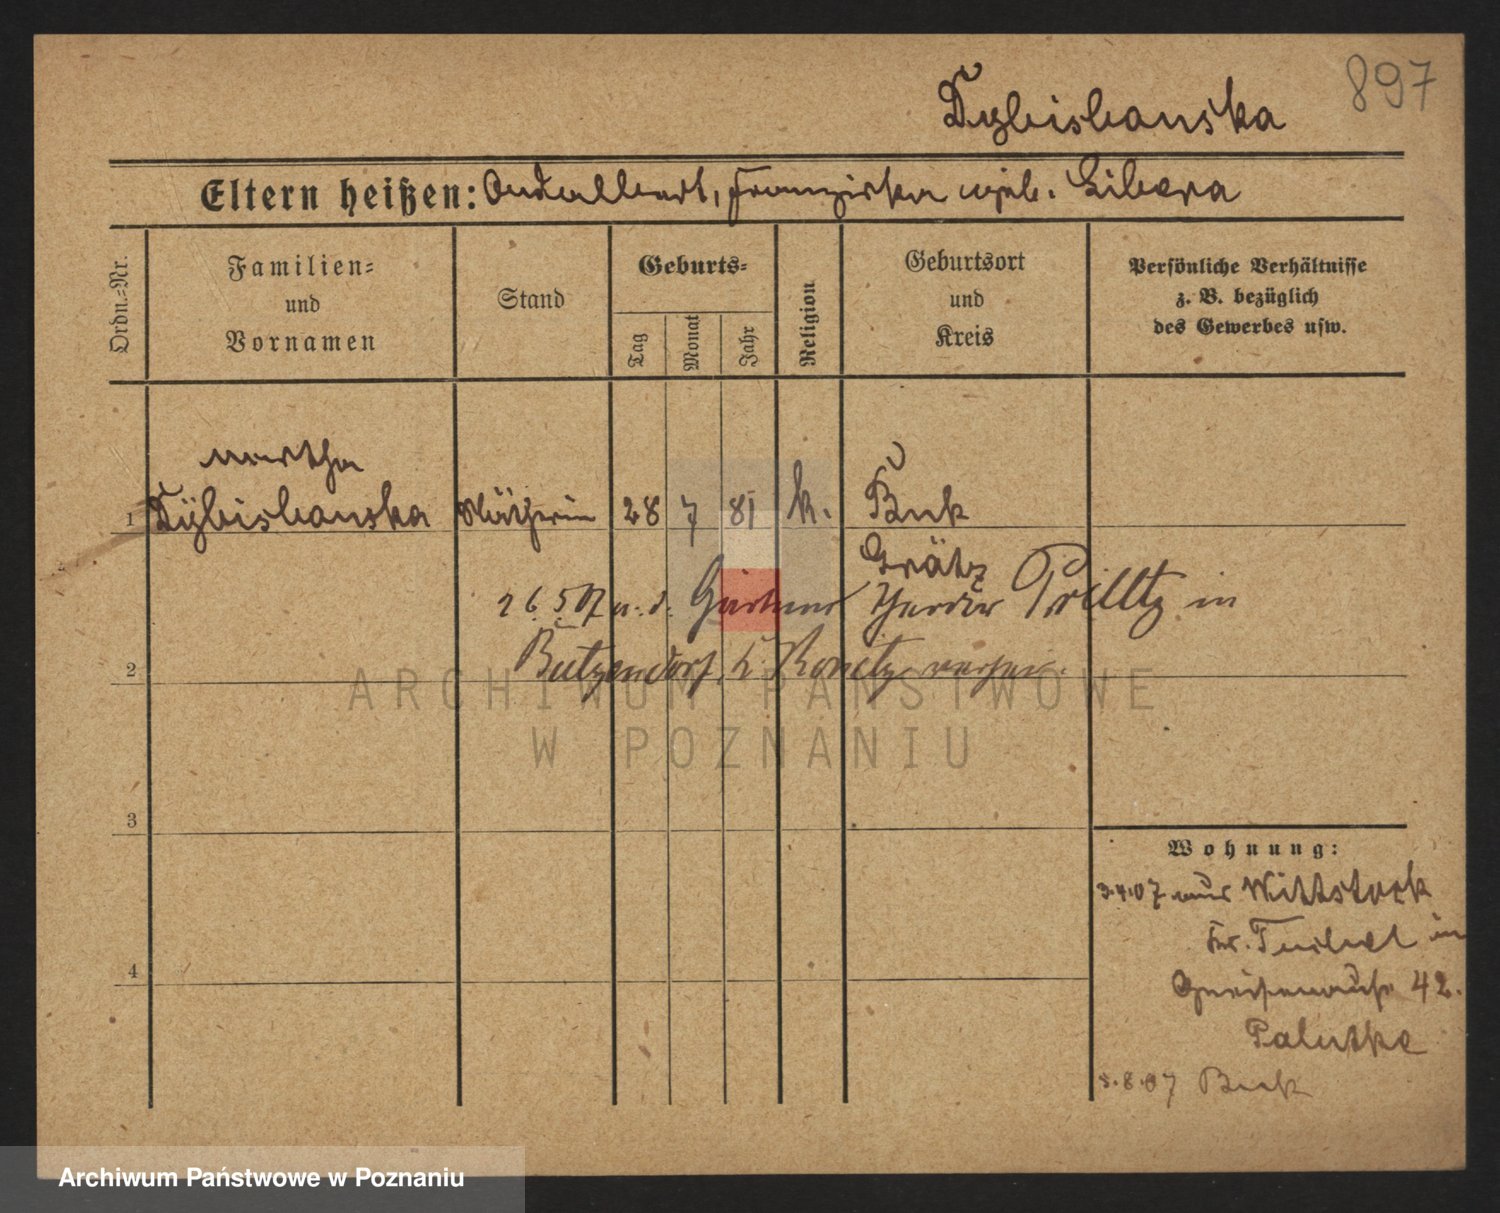 897
Dybisbanska
Eltern heißen: Adalbert, Franziska geb. Libera
Ordn.-Nr.
Familien- und Vornamen
Stand
Geburts-
Tag
Monat
Jahr
Religion
Geburtsort und Kreis
Persönliche Verhältnisse
z. B. bezüglich
des Gewerbes usw.
Martha
1 Dybisbanska Näherin 28 7 81 k. Buk
Grätz
26.5.07 m. d. Gärtner Theodor in
2
Butzendorf, K. Konitz verheir.
3
4
Wohnung:
3.4.07 aus Wittstock
Kr. in
42.
5.8.07 Buk
ARCHIWUM PAŃSTWOWE
W POZNANIU
Archiwum Państwowe w Poznaniu